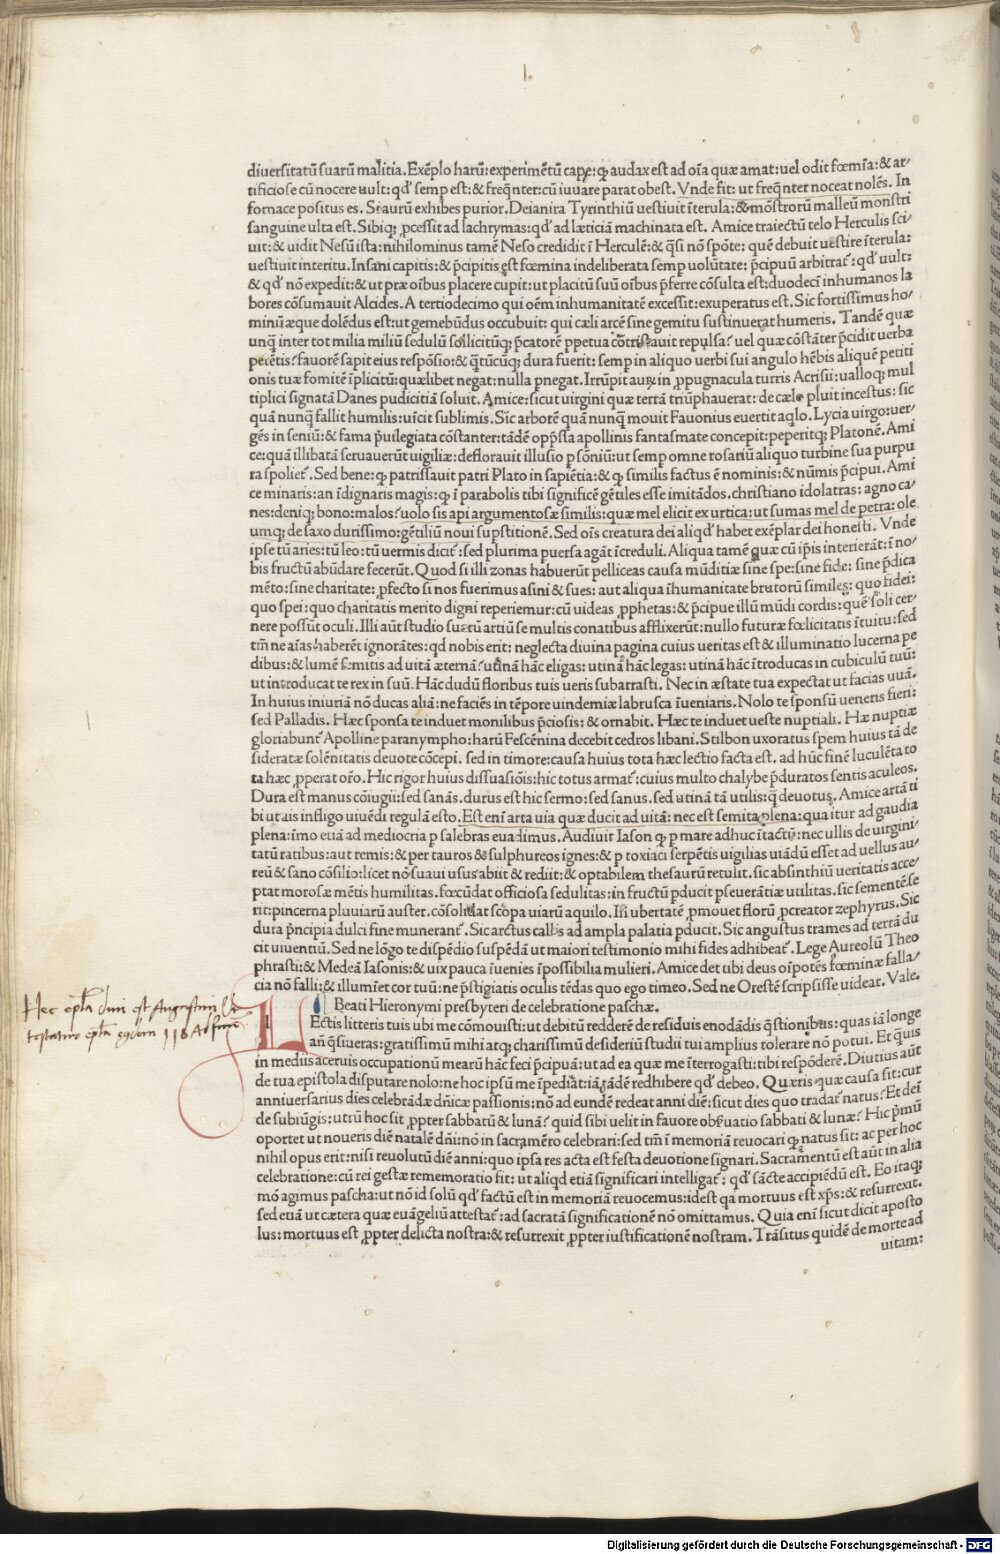 l.
diuersitatū suarū malitia. Exēplo harū: experimētū cape: ꝙ audax est ad oīa quæ amat: uel odit fœmīa: & ar-
tificiose cū nocere uult: qd' semp est: & freq̄nter: cū iuuare parat obest. Vnde fit: ut freq̄nter noceat nolēs. In
fornace positus es. Si aurū exhibes purior. Deianira Tyrinthiū uestiuit īterula: & mōstrorū malleū monstri
sanguine ulta est. Sibiq; ꝓcessit ad lachrymas: qd' ad læticiā machinata est. Amice traiectū telo Herculis sci-
uit: & uidit Nesū ista: nihilominus tamē Neso credidit ī Herculē: & q̄si nō spōte: quē debuit uestire īterula:
uestiuit interitu. Insani capitis: & p̄cipitis est fœmina indeliberata semp uolūtate: p̄cipuū arbitrat': qd' uult:
& qd' nō expedit: & ut præ oībus placere cupit: ut placitū suū oībus p̄ferre cōsulta est: duodecī inhumanos la
bores cōsumauit Alcides. A tertiodecimo qui oēm inhumanitatē excessit: exuperatus est. Sic fortissimus ho-
minū æque dolēdus est: ut gemebūdus occubuit: qui cæli arcē sine gemitu sustinuerat humeris. Tandē quæ
unq̄ inter tot milia miliū sedulū sollicitūq; p̄catorē ꝑpetua cōtristauit repulsa? uel quæ cōstāter p̄cidit uerba
petētis? fauorē sapit eius respōsio: & q̄tūcūq; dura fuerit: semp in aliquo uerbi sui angulo hēbis aliquē petiti
onis tuæ fomitē īplicitū: quælibet negat: nulla pnegat. Irrūpit aurū in ꝓpugnacula turris Acrisii: ualloq; mul
tiplici signatā Danes pudicitiā soluit. Amice: sicut uirgini quæ terrā triūphauerat: de cælo pluit incestus: sic
quā nunq̄ fallit humilis: uīcit sublimis. Sīc arborē quā nunq̄ mouit Fauonius euertit aq̄lo. Lycia uirgo: uer-
gēs in seniū: & fama p̄uilegiata cōstanter: tādē opp̄ssa apollinis fantasmate concepit: peperitq; Platonē. Ami
ce: quā illibatā seruauerūt uigiliæ: deflorauit illusio p sōniū: ut semp omne rosariū aliquo turbine sua purpu
ra spoliet'. Sed bene: ꝙ patrissauit patri Plato in sapiētia: & ꝙ similis factus ē nominis: & nūmis p̄cipui. Ami
ce minaris: an īdignaris magis: ꝙ ī parabolis tibi significē gētiles esse imitādos. christiano idolatras: agno ca-
nes: deniq; bono: malos? uolo sis api argumentosæ similis: quæ mel elicit ex urtica: ut sumas mel de petra: ole
umq; de saxo durissimo: gētiliū noui supstitionē. Sed oīs creatura dei aliqd' habet exēplar dei honesti. Vnde
ipse tū aries: tū leo: tū uermis dicit': sed plurima puersa agāt īcreduli. Aliqua tamē quæ cū ip̄is interierāt: ī no-
bis fructū abūdare fecerūt. Quod si illi zonas habuerūt pelliceas causa mūditiæ sine spe: sine fide: sine p̄dica
mēto: sine charitate: ꝓfecto si nos fuerimus asini & sues: aut aliqua īhumanitate brutorū similes: quo fidei:
quo spei: quo charitatis merito digni reperiemur: cū uideas ꝓphetas: & p̄cipue illū mūdi cordis: quē soli cer-
nere possūt oculi. Illi aūt studio suarū artiū se multis conatibus afflixerūt: nullo futuræ fœlicitatis ītuitu: sed
tm̄ ne aīas haberēt ignorātes: qd nobis erit: neglecta diuina pagina cuius ueritas est & illuminatio lucerna pe
dibus: & lumē semitis ad uitā æternā? utīnā hāc eligas: utinā hāc legas: utinā hāc ītroducas in cubiculū tuū:
ut introducat te rex in suū. Hāc dudū floribus tuis ueris subarrasti. Nec in æstate tua expectat ut facias uuā.
In huius iniuriā nō ducas aliā: ne faciēs in tēpore uindemiæ labrusca īueniaris. Nolo te sponsū ueneris fieri:
sed Palladis. Hæc sponsa te induet monilibus p̄ciosis: & ornabit. Hæc te induet ueste nuptiali. Hæ nuptiæ
gloriabunt' Apolline paranympho: harū Fescēnina decebit cedros libani. Stilbon uxoratus spem huius tā de
sideratæ solēnitatis deuote cōcepi. sed in timore: causa huius tota hæc lectio facta est. ad hūc finē luculēta to
ta hæc ꝓperat orō. Hic rigor huius dissuasiōis: hic totus armat': cuius multo chalybe p̄duratos sentis aculeos.
Dura est manus cōiugii: sed sanās. durus est hic sermo: sed sanus. sed utinā tā utilis: q̄ deuotus. Amice artā ti
bi ut ais infligo uiuēdi regulā esto. Est enī arta uia quæ ducit ad uitā: nec est semita plena: qua itur ad gaudia
plena: īmo etiā ad mediocria p salebras euadimus. Audiuit Iason ꝙ p mare adhuc ītactū: nec ullis de uirgini-
tatū ratibus: aut remis: & per tauros & sulphureos ignes: & p toxiaci serpētis uigilias uiādū esset ad uellus au-
reū & sano cōsilio: licet nō suaui usus abiit & rediit: & optabilem thesaurū retulit. sic absinthiū ueritatis acce-
ptat morosæ mētis humilitas. fœcūdat officiosa sedulitas: in fructū pducit pseuerātiæ utilitas. sic semētē se
rit: pincerna pluuiarū auster. cōsolidat scopa uiarū aquilo. In ubertatē ꝓmouet florū ꝓcreator zephyrus. Sic
dura p̄ncipia dulci fine munerant'. Sic arctus callis ad ampla palatia pducit. Sic angustus trames ad terrā du
cit uiuentiū. Sed ne lōgo te dispēdio suspēdā ut maiori testimonio mihi fides adhibeat'. Lege Aureolū Theo
phrasti: & Medeā Iasonis: & uix pauca īuenies īpossibilia mulieri. Amice det tibi deus oīpotēs fœminæ falla-
cia nō falli: & illumiet cor tuū: ne p̄stigiatis oculis tēdas quo ego timeo. Sed ne Orestē scripsisse uidear. Vale.
Beati Hieronymi presbyteri de celebratione paschæ.
Hec ep̄la diui est Augustini
LEctis litteris tuis ubi me cōmouisti: ut debitū redderē de residuis enodādis q̄stionibus: quas iā longe
testatur ep̄la 118
an̄ q̄siueras: gratissimū mihi atq; charissimū desideriū studii tui amplius tolerare nō potui. Et q̄uis
in mediis aceruis occupationū mearū hāc feci p̄cipuā: ut ad ea quæ me īterrogasti: tibi respōderē. Diutius aūt
de tua epistola disputare nolo: ne hoc ipsū me īpediat: iā tādē redhibere qd' debeo. Quæris quæ causa sit: cur
anniuersarius dies celebrādæ dn̄icæ passionis: nō ad eundē redeat anni diē: sicut dies quo tradat' natus? Et deī
de subiūgis: utrū hoc sit ꝓpter sabbatū & lunā? quid sibi uelit in fauore obseruatio sabbati & lunæ? Hic p̄mū
oportet ut noueris diē natalē dn̄i: nō in sacramēto celebrari: sed tm̄ ī memoriā reuocari ꝙ natus sit: ac per hoc
nihil opus erit: nisi reuolutū diē anni: quo ipsa res acta est festa deuotione signari. Sacramentū est aūt in alia
celebratione: cū rei gestæ rememoratio fit: ut aliqd etiā significari intelligat': qd' sācte accipiēdū est. Eo itaq;
mō agimus pascha: ut nō id solū qd' factū est in memoriā reuocemus: idest qa mortuus est xp̄s: & resurrexit.
sed etiā ut cætera quæ euāgeliū attestat': ad sacratā significationē nō omittamus. Quia enī sicut dicit aposto
lus: mortuus est ꝓpter delicta nostra: & resurrexit ꝓpter iustificationē nostram. Trāsitus quidē de morte ad
uitam:
Digitalisierung gefördert durch die Deutsche Forschungsgemeinschaft - DFG